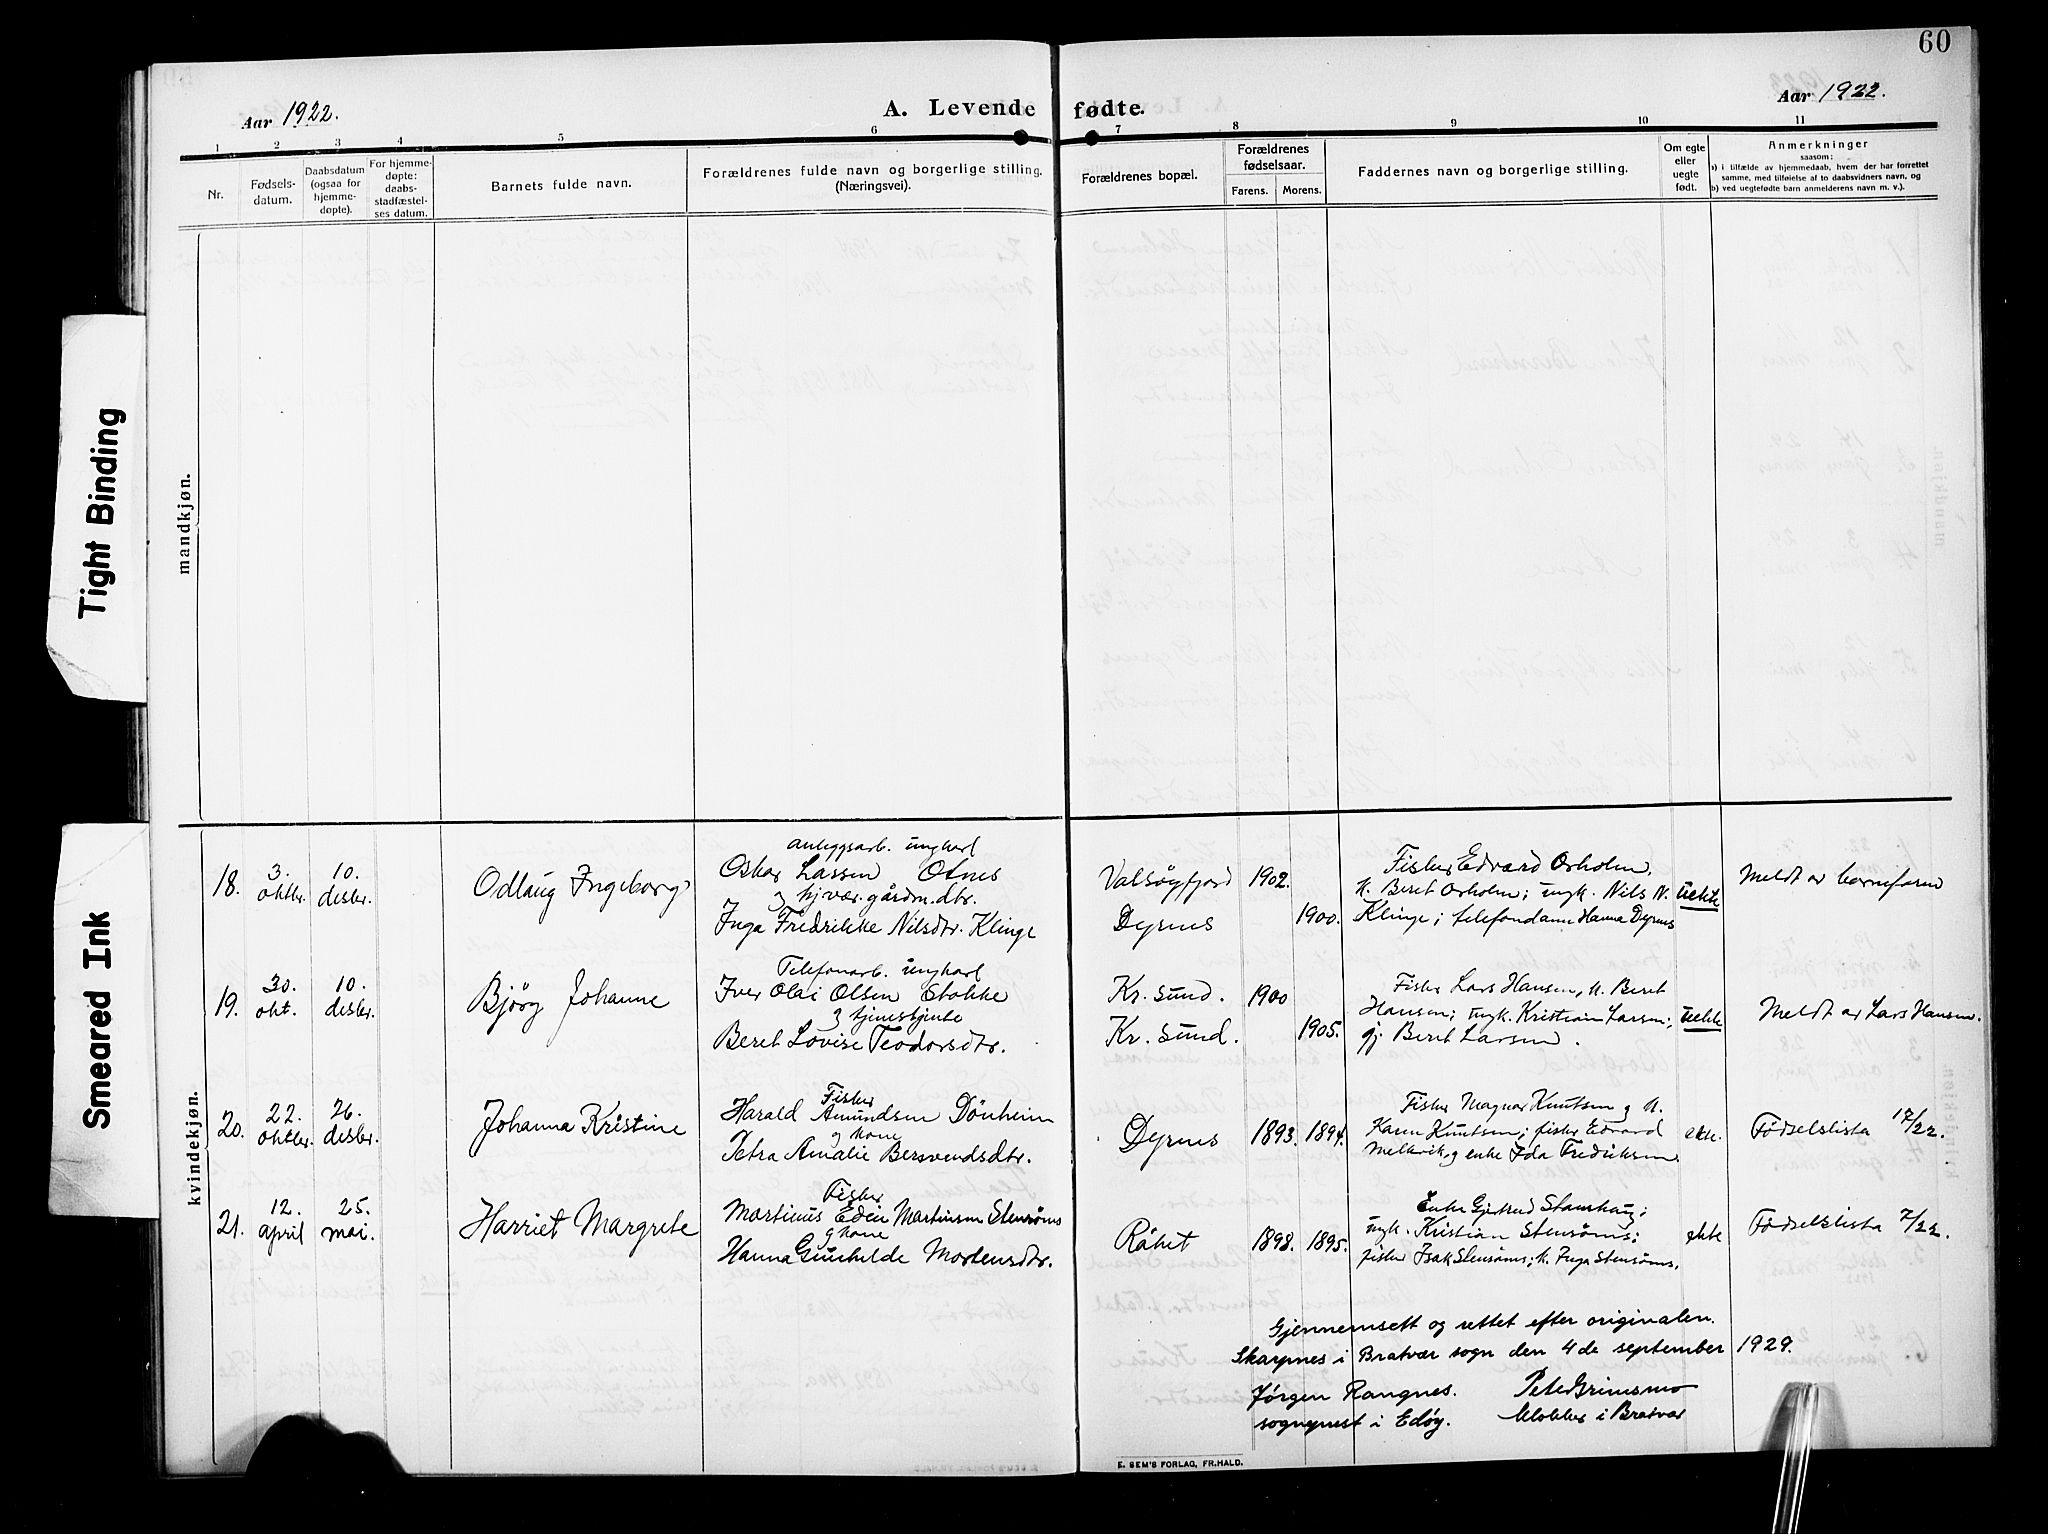 60
Aar 1922.
A. Levende fødte.
Aar 1922.
1 2 3 4 5 6 7 8 9 10 11
Nr.
Fødsels-
datum.
Daabsdatum
(ogsaa for
hjemme-
døpte).
For hjemme-
døpte:
daabs-
stadfæstel-
ses datum.
Barnets fulde navn.
Forældrenes fulde navn og borgerlige stilling.
(Næringsvei).
Forældrenes bopæl.
Forældrenes
fødselsaar.
Farens. Morens.
Faddernes navn og borgerlig stilling.
Om egte
eller
uegte
født.
Anmerkninger
saasom:
a) i tilfælde av hjemmedaab, hvem der har forrettet
samme, med tilføielse af to daabsvidners navn, og
b) ved uegtefødte barn anmelderens navn m. v.).
mandkjøn.
kvindekjøn.
18.
3.
oktbr.
10.
desbr.
Odlaug Ingeborg
anleggsarb. ungkarl
Oskar Lassen Otnes
og hj.vær. gårdm.dtr.
Inga Fredrikke Nilsdtr. Klinge
Valsøyfjord
Dyrnes
1902.
1900.
Fisker Edvard Orholm,
k. Beret Orholm; ungk. Nils N.
Klinge; telefondame Hanna Dyrnes
uekte
Meldt av barnefaren
19.
30.
okt.
10.
desbr.
Bjørg Johanne
Telefonarb. ungkarl
Iver Olai Olsen Stokke
og tjenestjente
Beret Lovise Teodorsdtr.
Kr. sund.
Kr. sund.
1900
1905.
Fisker Lars Hansen, k. Beret
Hansen; ungk. Kristian Larsen;
pj. Beret Larsen.
uekte
Meldt av Lars Hansen.
20.
22.
oktbr.
26.
desbr.
Johanna Kristine
Fisker
Harald Amundsen Dønheim
og kone
Petra Amalie Bersvendsdtr.
Dyrnes
1893. 1894.
Fisker Magnar Knutsen og k.
Karen Knutsen; fisker Edvard
Melkvik og enke Ida Fredriksen.
ekte.
Fødselslista 17/22.
21.
12.
april
25.
mai.
Harriet Margrete
Fisker
Martinus Edin Martinsen Stensøms
og kone
Hanna Gunhilde Mortensdtr.
Råket
1898. 1895.
Enke Gjertrud Stamhaug;
ungk. Kristian Stensøms;
fisker Isak Stensøms; k. Inga Stensøms.
ekte
Fødselslista 7/22.
Gjennemsett og rettet efter originalen.
Skarpnes i Bratvær sogn den 4de september 1929.
Jørgen Rangnes. Peter Grimsmo
sogneprest i Edøy. klokker i Bratvær
E. SEM'S FORLAG, FR.HALD.
Tight Binding
Smeared Ink